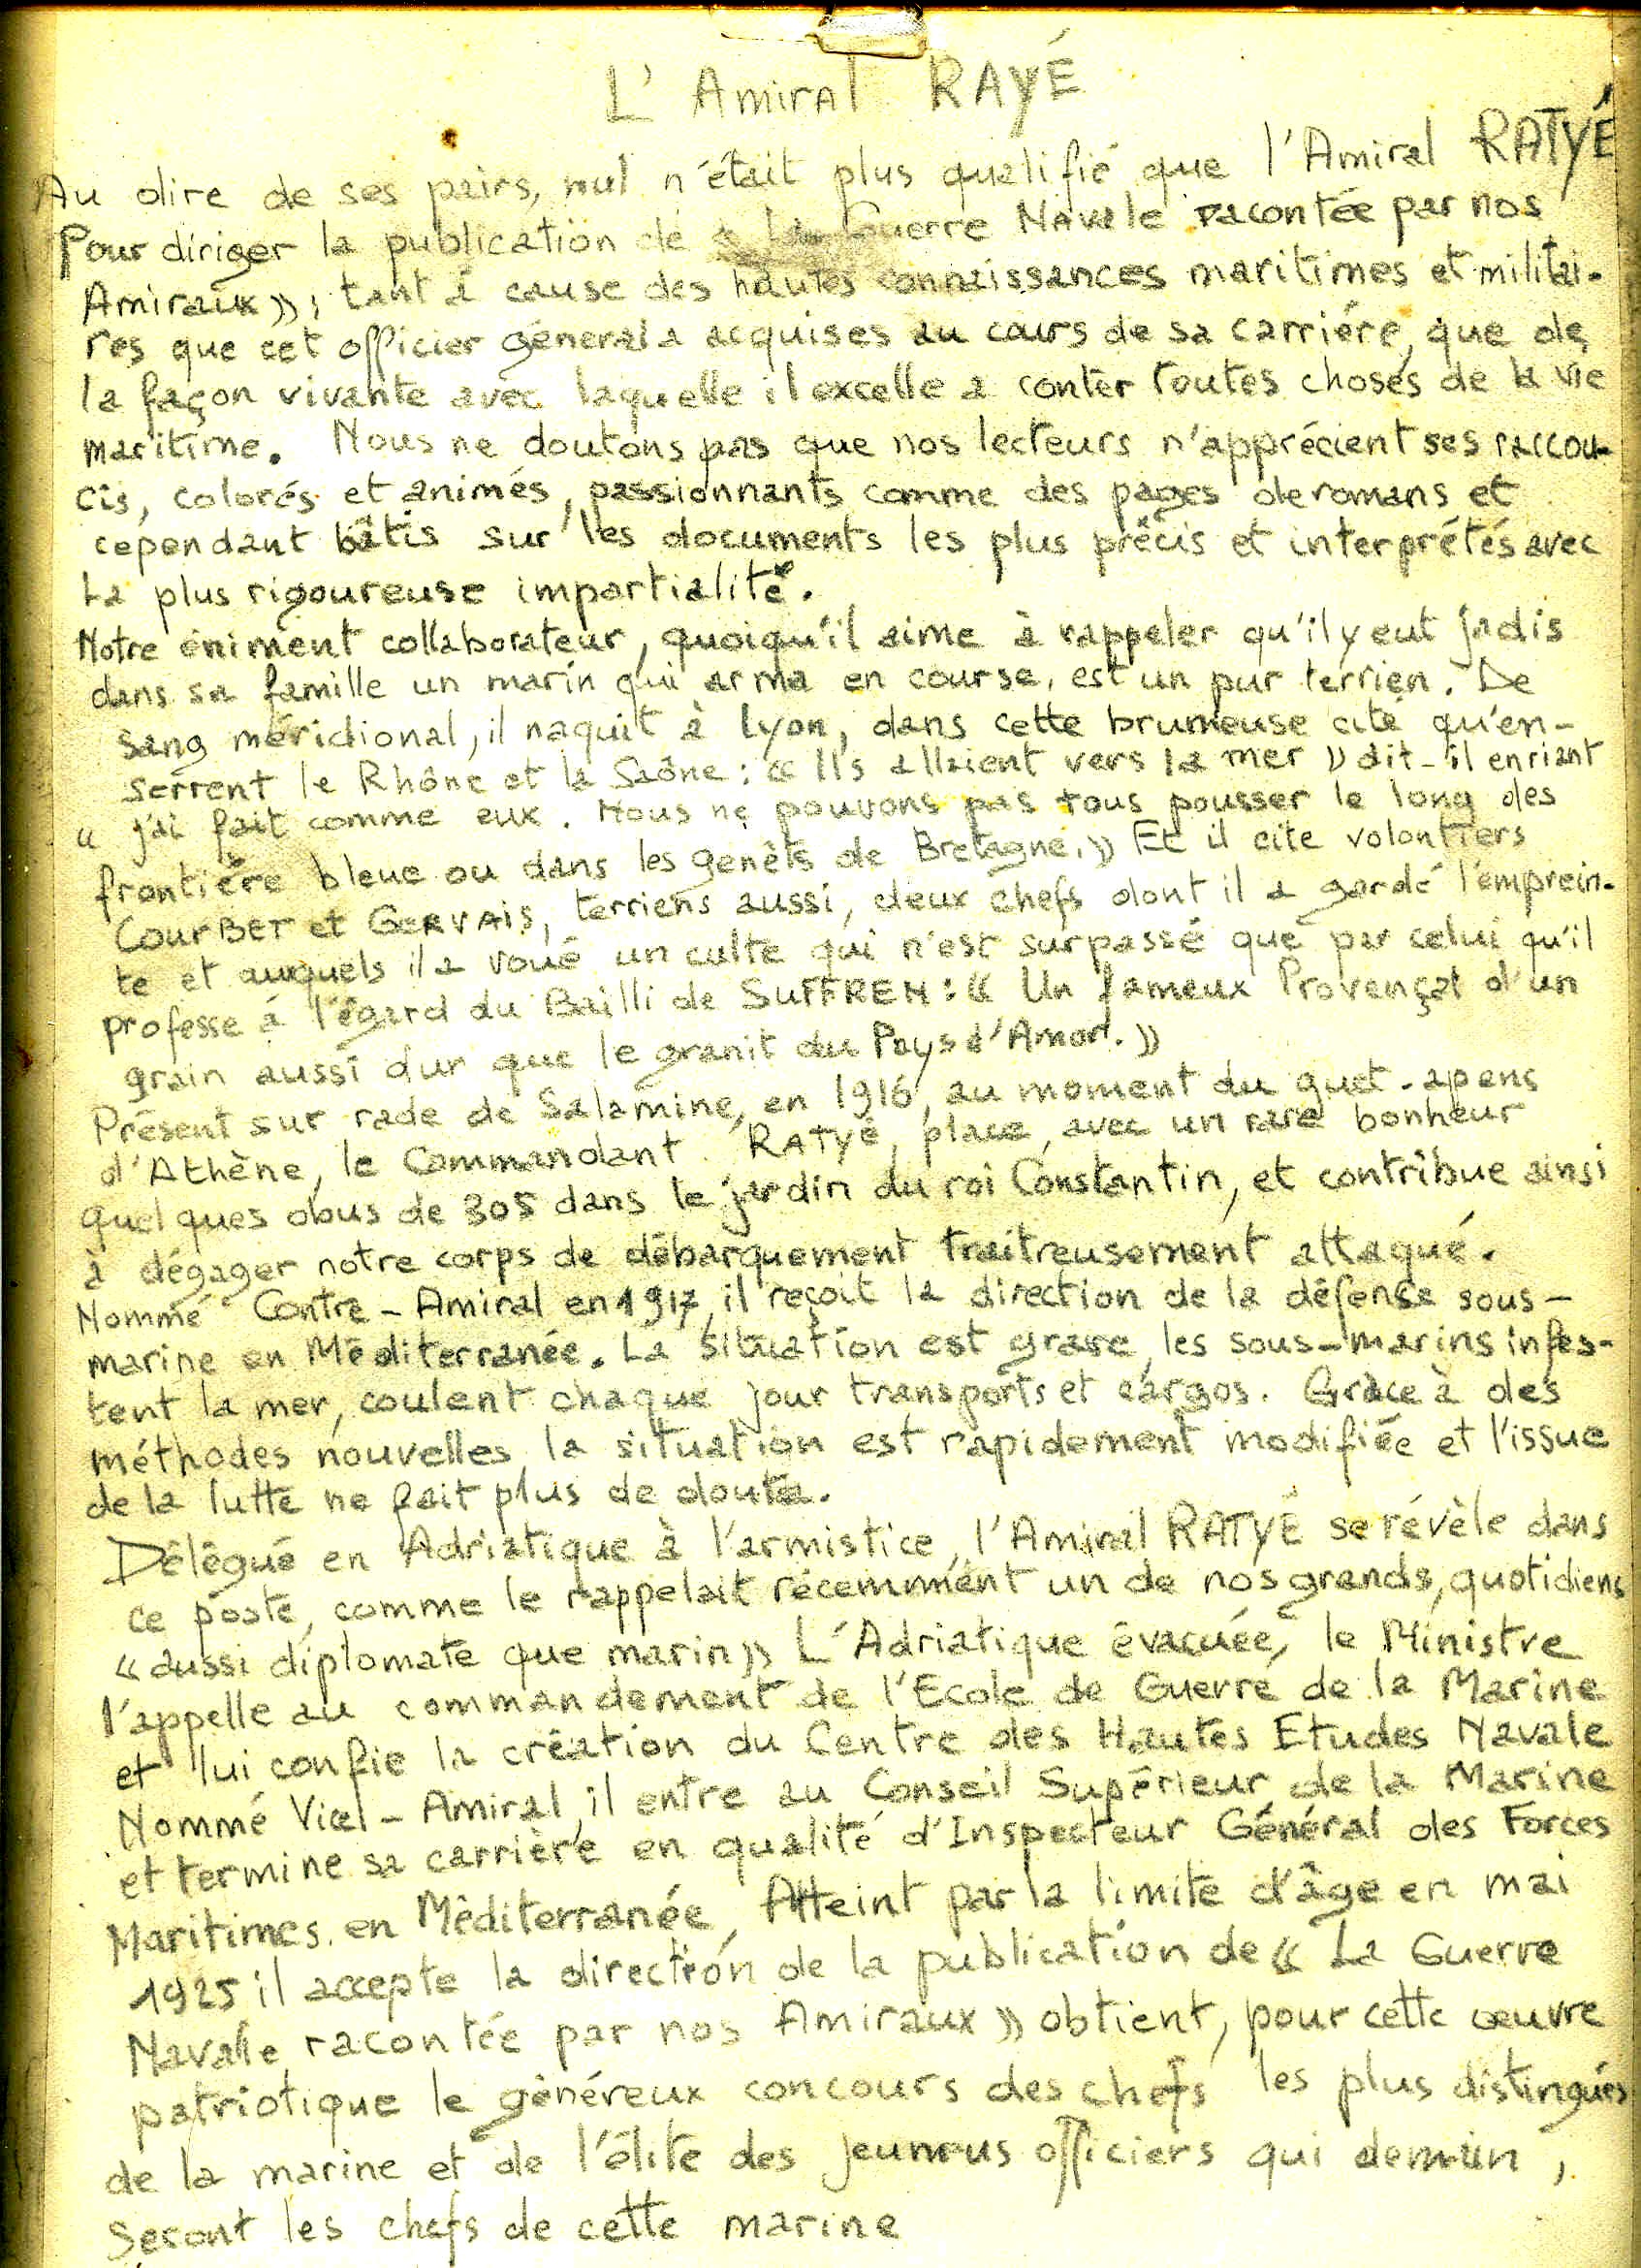 L'Amiral RAYÉ
Au dire de ses pairs, nul n'était plus qualifié que l'Amiral RATYÉ
Pour diriger la publication de « La Guerre Navale racontée par nos
Amiraux », tant à cause des hautes connaissances maritimes et militai-
res que cet officier général a acquises au cours de sa carriére, que de
la façon vivante avec laquelle il excelle a conter toutes choses de la vie
maritime. Nous ne doutons pas que nos lecteurs n'apprécient ses raccou-
cis, colorés et animés, passionnants comme des pages de romans et
cependant bâtis sur les documents les plus précis et interprétés avec
La plus rigoureuse impartialité.
Notre éniment collaborateur, quoiqu'il aime à rappeler qu'il y eut jadis
dans sa famille un marin qui arma en course, est un pur terrien. De
sang méridional, il naquit à Lyon, dans cette brumeuse cité qu'en-
serrent le Rhône et la Saône : « Ils allaient vers la mer » dit-il en riant
« j'ai fait comme eux. Nous ne pouvons pas tous pousser le long des
frontière bleue ou dans les genêts de Bretagne. » Et il cite volontiers
CourBET et GERVAIS, terriens aussi, deux chefs dont il a gardé l'emprein-
te et auxquels il a voué un culte qui n'est surpassé que par celui qu'il
professe à l'égard du Bailli de SUFFREN : « Un fameux Provençal d'un
grain aussi dur que le granit du Pays d'Amor. »
Présent sur rade de Salamine, en 1916, au moment du guet-apens
d'Athène, le Commandant RATYÉ, place, avec un rare bonheur
quelques obus de 305 dans le jardin du roi Constantin, et contribue ainsi
à dégager notre corps de débarquement traîtreusement attaqué.
Nommé Contre-Amiral en 1917, il reçoit la direction de la défense sous-
marine en Méditerranée. La situation est grave, les sous-marins infes-
tent la mer, coulent chaque jour transports et cargos. Grâce à des
méthodes nouvelles, la situation est rapidement modifiée et l'issue
de la lutte ne fait plus de doute.
Délégué en Adriatique à l'armistice, l'Amiral RATYÉ se révèle dans
ce poste, comme le rappelait récemment un de nos grands, quotidiens
« aussi diplomate que marin » L'Adriatique évacuée, le Ministre
l'appelle au commandement de l'Ecole de Guerre de la Marine
et lui confie la création du Centre des Hautes Etudes Navale
Nommé Vicel-Amiral, il entre au Conseil Supérieur de la Marine
et termine sa carrière en qualité d'Inspecteur Général des Forces
Maritimes en Méditerranée, Atteint par la limite d'âge en mai
1925 il accepte la direction de la publication de « La Guerre
Navalle racontée par nos Amiraux » obtient, pour cette œuvre
patriotique le généreux concours des chefs les plus distingués
de la marine et de l'élite des officiers qui demain,
Seront les chefs de cette marine